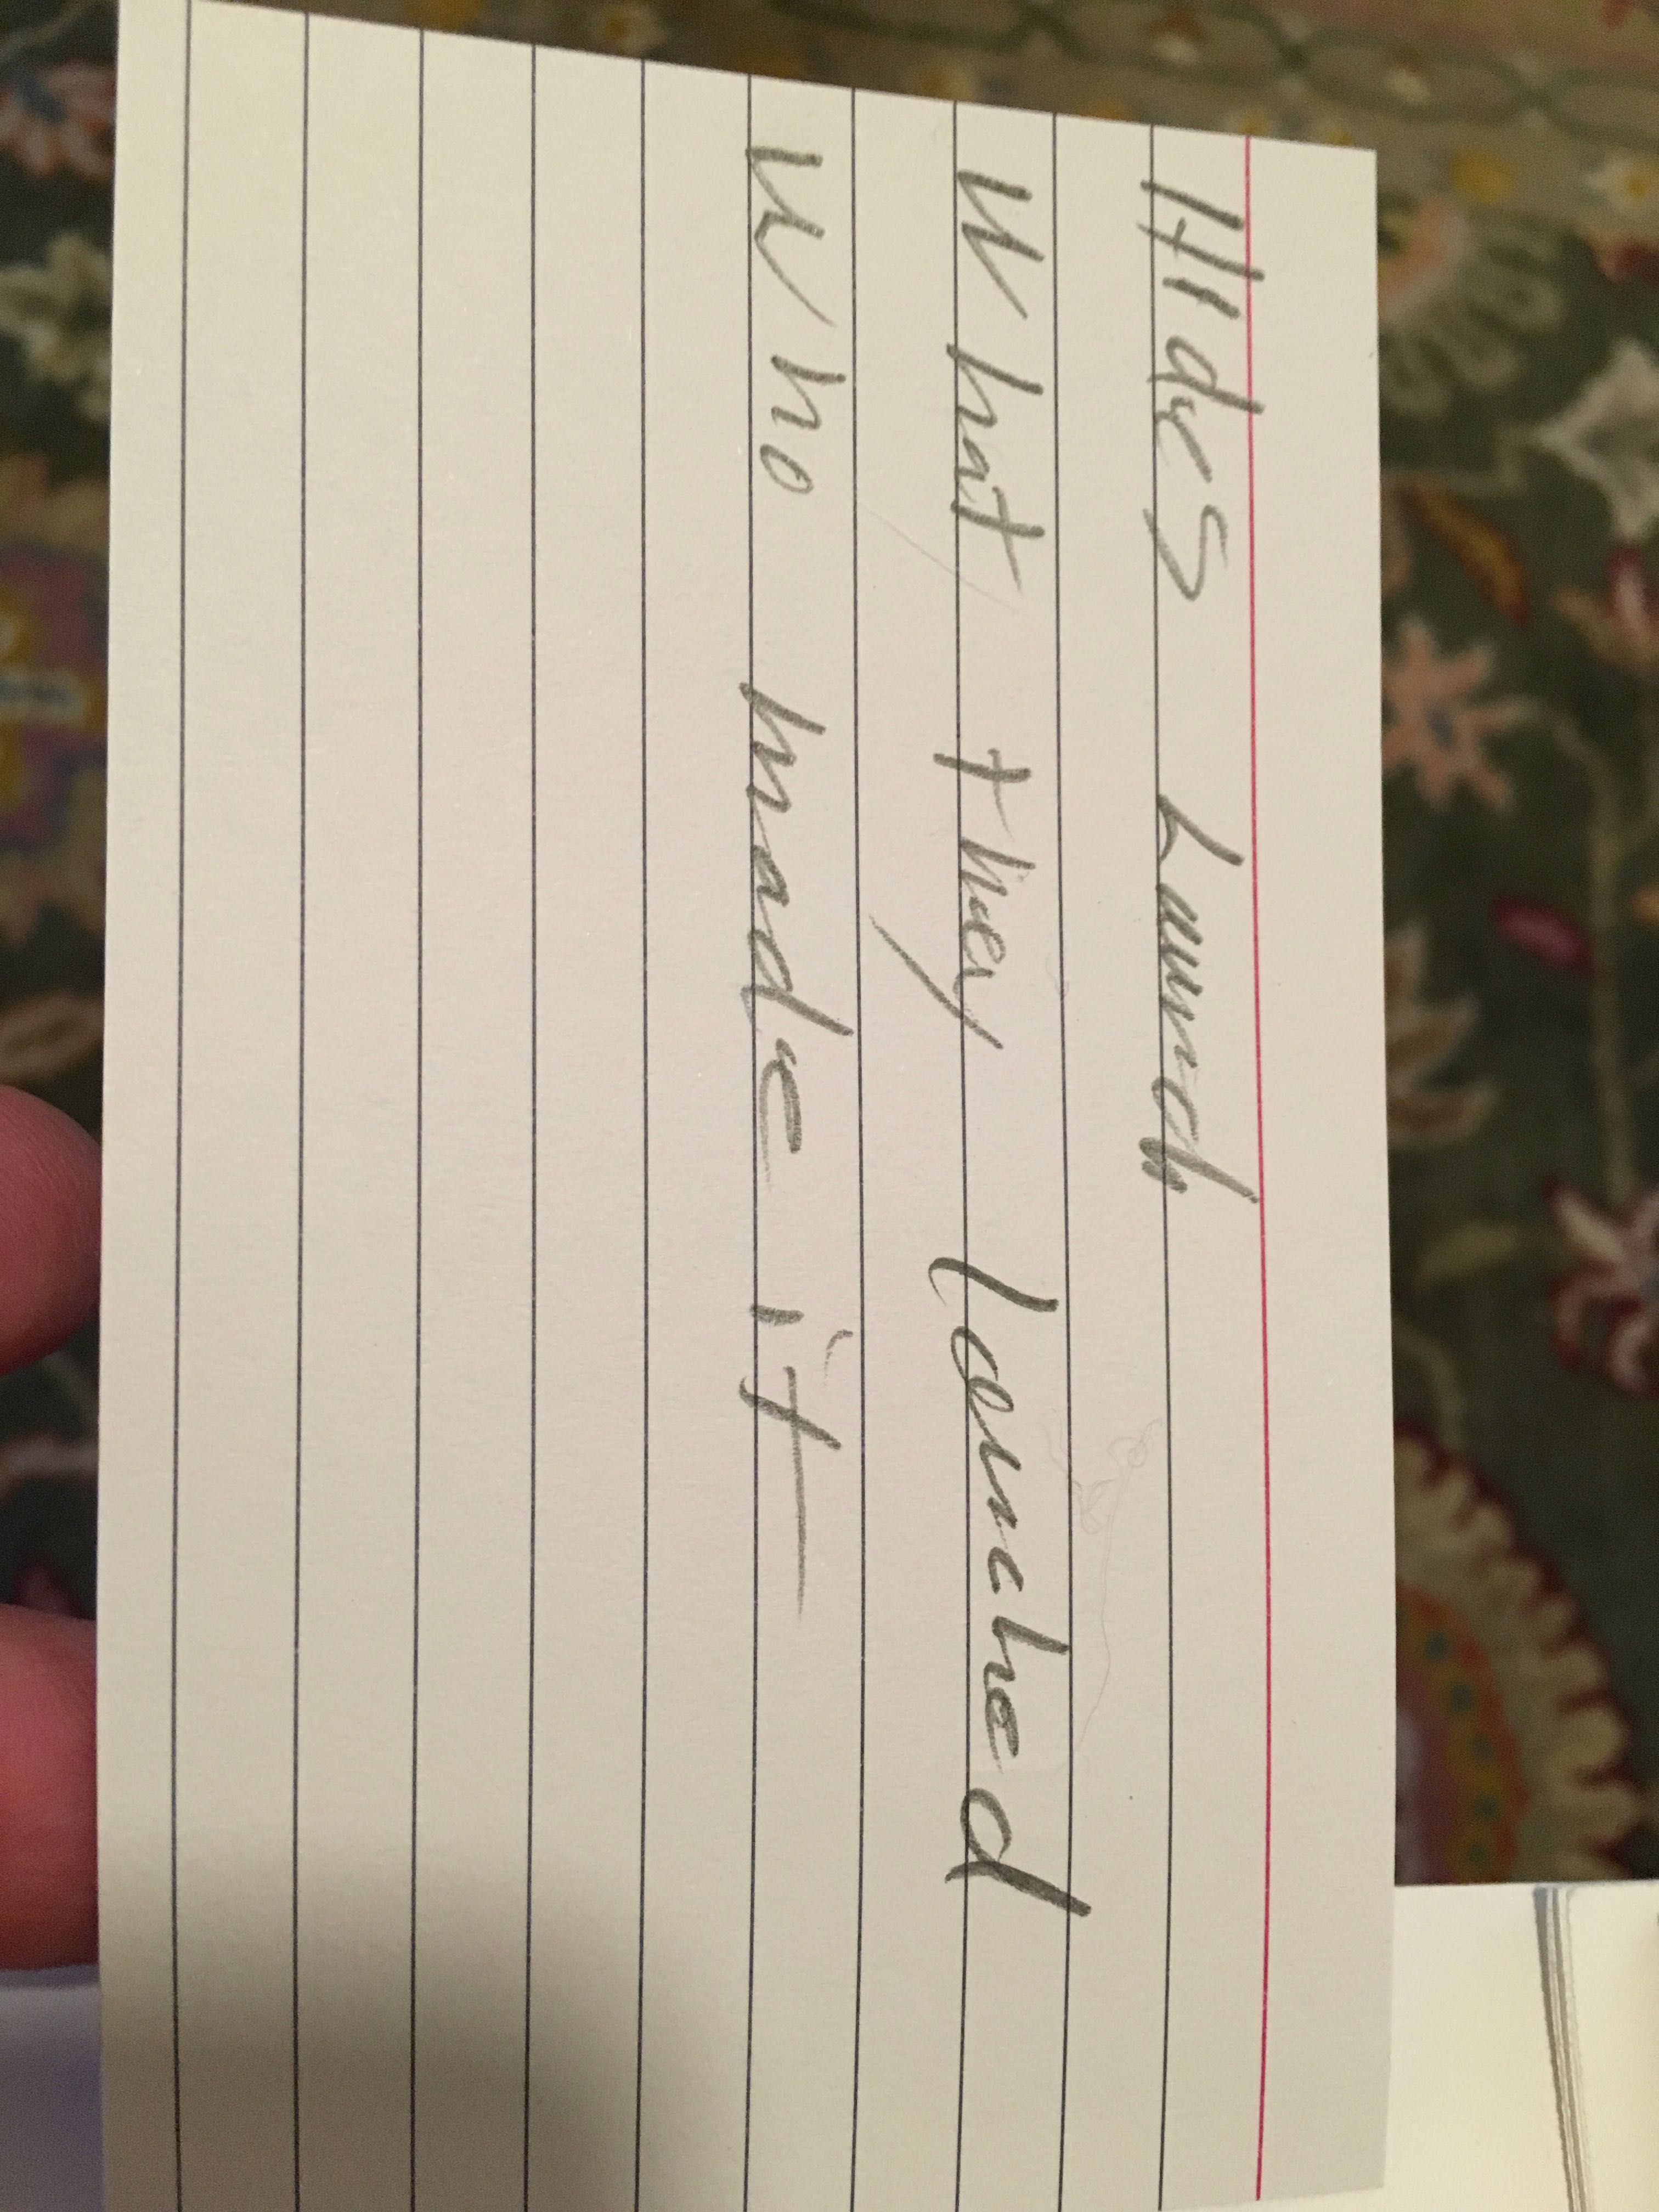 Hides Launch
What they launched
Who made it